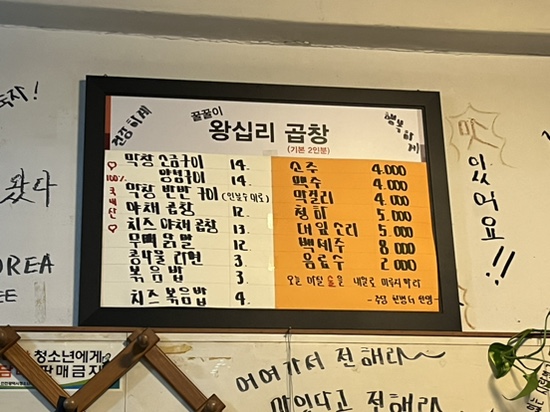 건강하게
꿀꿀이
왕십리 곱창
(기본 2인분)
행복하게
100%
국내산
막창 소금구이 14.
양념구이 14.
막창 반반 구이 (인분수대로)
야채 곱창 12.
치즈 야채 곱창 13.
무뼈 닭발 12.
콩나물 라면 3.
볶음밥 3.
치즈 볶음밥 4.
소주 4.000
맥주 4.000
막걸리 4.000
청하 5.000
매실 5.000
백세주 8.000
음료수 2.000
오늘 마실 술을 내일로 미루지 마라
맛있어요!!
왔다
OREA
청소년에게
판매금지
어여가서 전해라~
맛있다고 전해라